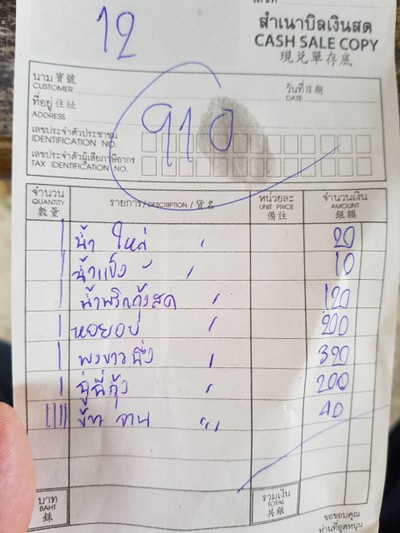 12
สำเนาบิลเงินสด
CASH SALE COPY
現兌單存底
นาม 寶號
CUSTOMER
วันที่ 日期
DATE
ที่อยู่ 住址
ADDRESS
910
เลขประจำตัวประชาชน
IDENTIFICATION NO.
เลขประจำตัวผู้เสียภาษีอากร
TAX IDENTIFICATION NO.
จำนวน QUANTITY 數量 รายการ / DESCRIPTION / 貨名 หน่วยละ UNIT PRICE 備註 จำนวนเงิน AMOUNT 銀額
1 น้ำ ใหญ่ 20
1 น้ำแข็ง 10
1 น้ำพริกกุ้งสด 120
1 หอยอบ 200
1 320
1 ฉู่ฉี่กุ้ง 200
1111 จาน 40
บาท
BAHT
銖
รวมเงิน
TOTAL
共銀
ขอขอบคุณ
ท่านที่อุดหนุน